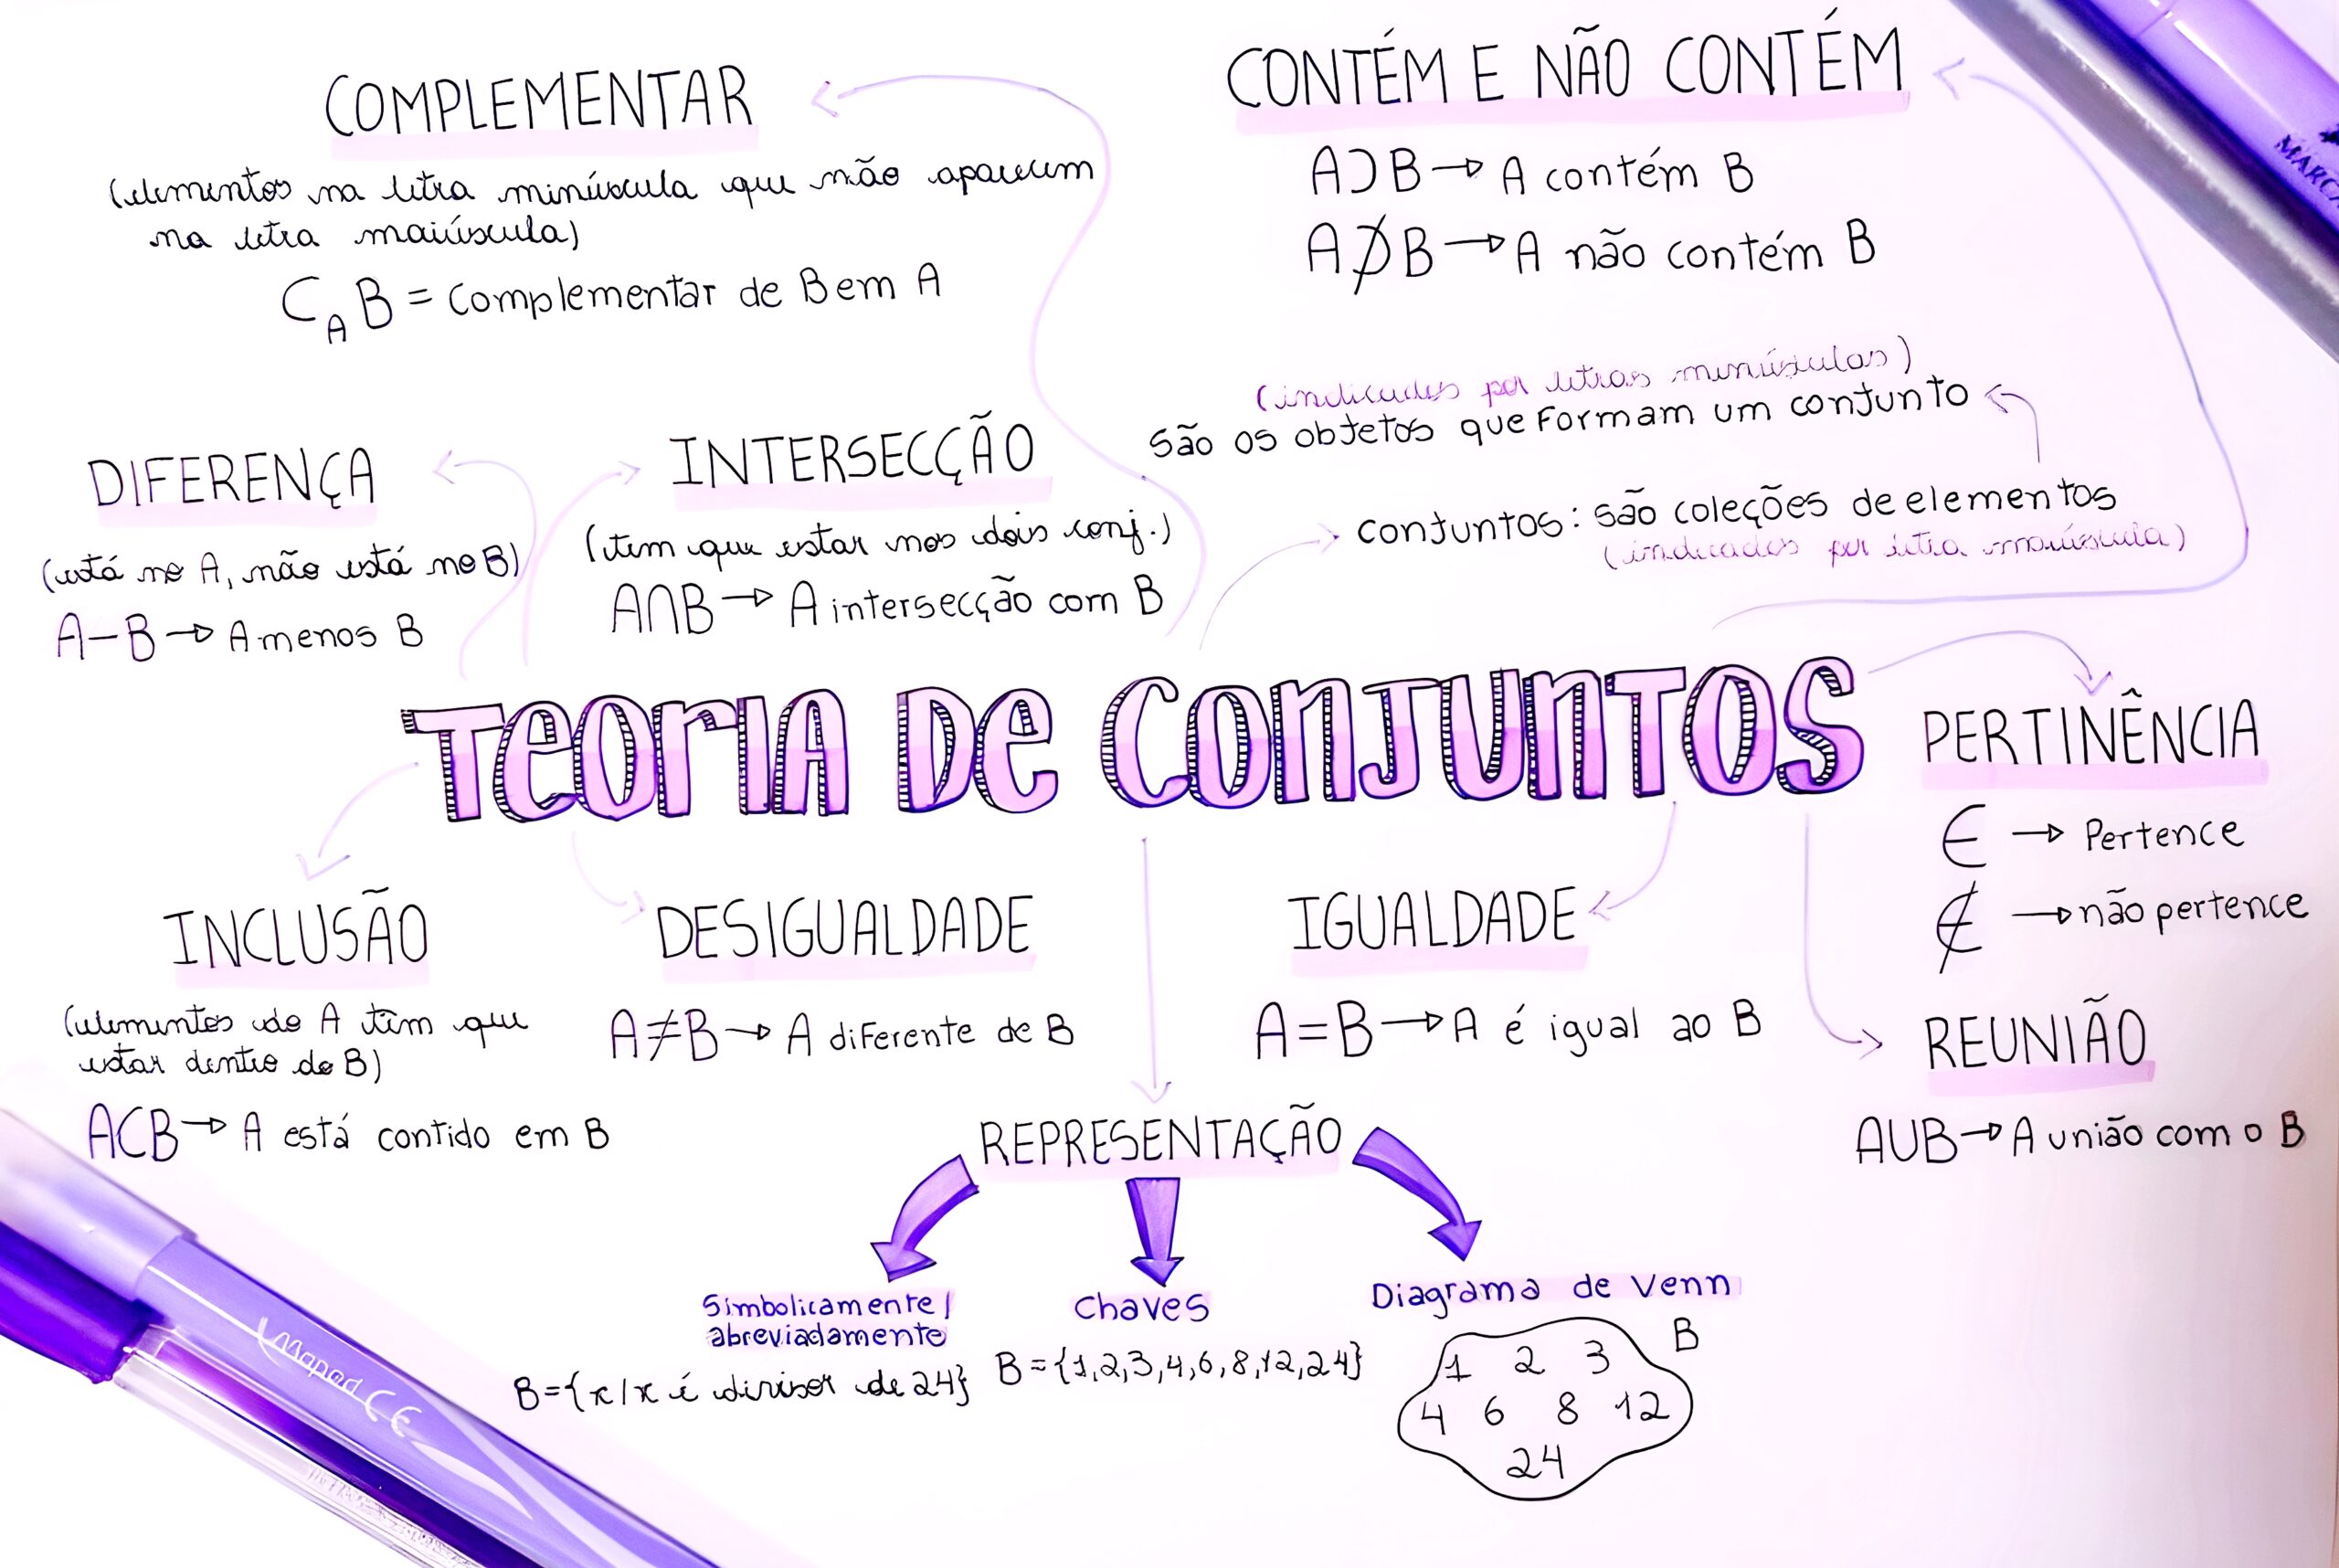 COMPLEMENTAR
(elementos na letra minúscula que não aparecem
na letra maiúscula)
C_A B = complementar de B em A
CONTÉM E NÃO CONTÉM
A⊃B → A contém B
A⊅B → A não contém B
(indicados por letras minúsculas)
são os objetos que formam um conjunto
conjuntos: são coleções de elementos
(indicados por letra maiúscula)
DIFERENÇA
(está no A, não está no B)
A-B → A menos B
INTERSECÇÃO
(tem que estar nos dois conj.)
A∩B → A intersecção com B
TEORIA DE CONJUNTOS
PERTINÊNCIA
∈ → Pertence
∉ → não pertence
INCLUSÃO
(elementos do A têm que
estar dentro do B)
A⊂B → A está contido em B
DESIGUALDADE
A≠B → A diferente de B
IGUALDADE
A=B → A é igual ao B
REUNIÃO
A∪B → A união com o B
REPRESENTAÇÃO
Simbolicamente/
abreviadamente
B={x/x é divisor de 24}
Chaves
B={1,2,3,4,6,8,12,24}
Diagrama de Venn
B
1 2 3
4 6 8 12
24
Maped CE